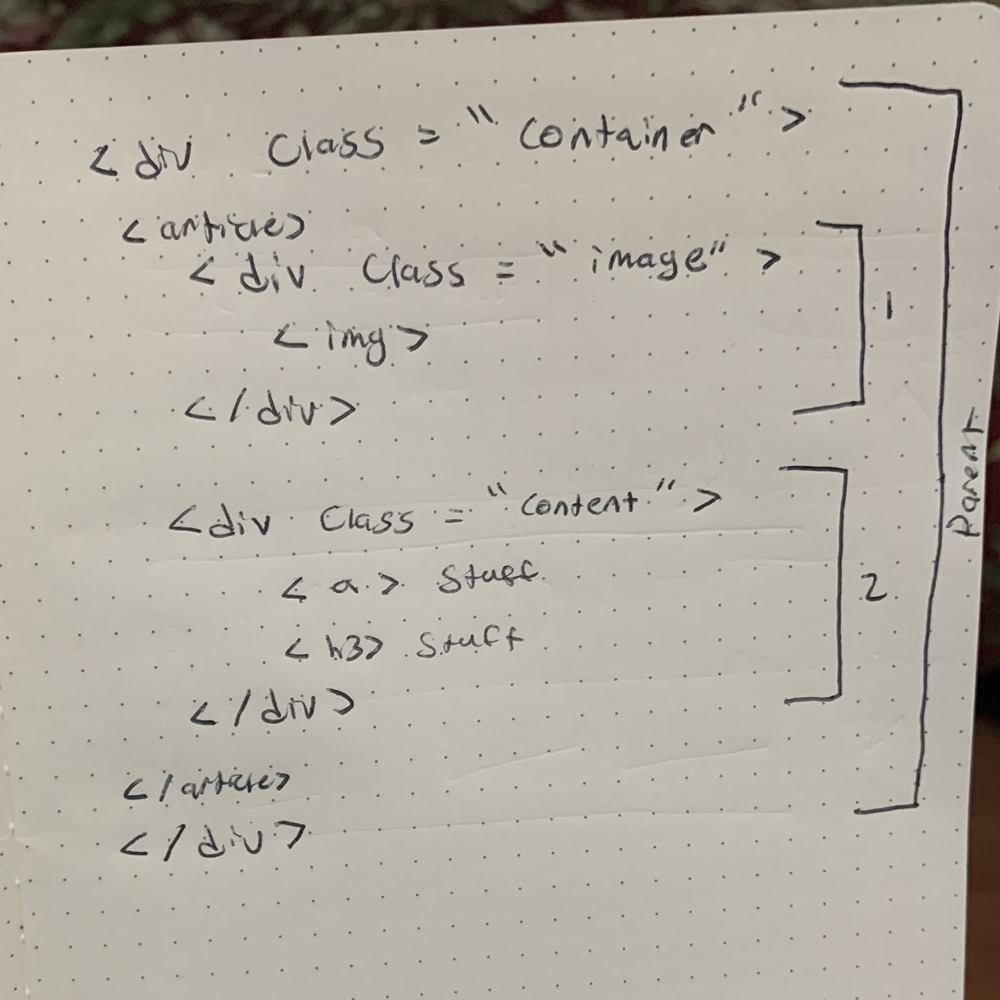 <div class = "container">
<article>
<div class = "image" >
<img>
</div>
1
<div class = "content">
<a> stuff
<h3> stuff
</div>
2
</article>
</div>
Parent